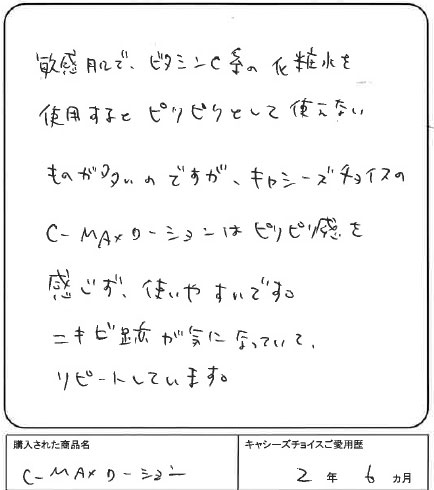 敏感肌で、ビタミンC系の化粧水を
使用するとピリピリとして使えない
ものが多いのですが、キャシーズチョイスの
C-MAXローションはピリピリ感を
感じず、使いやすいです。
ニキビ跡が気になっていて、
リピートしています。
購入された商品名
C-MAXローション
キャシーズチョイスご愛用歴
2年6ヵ月